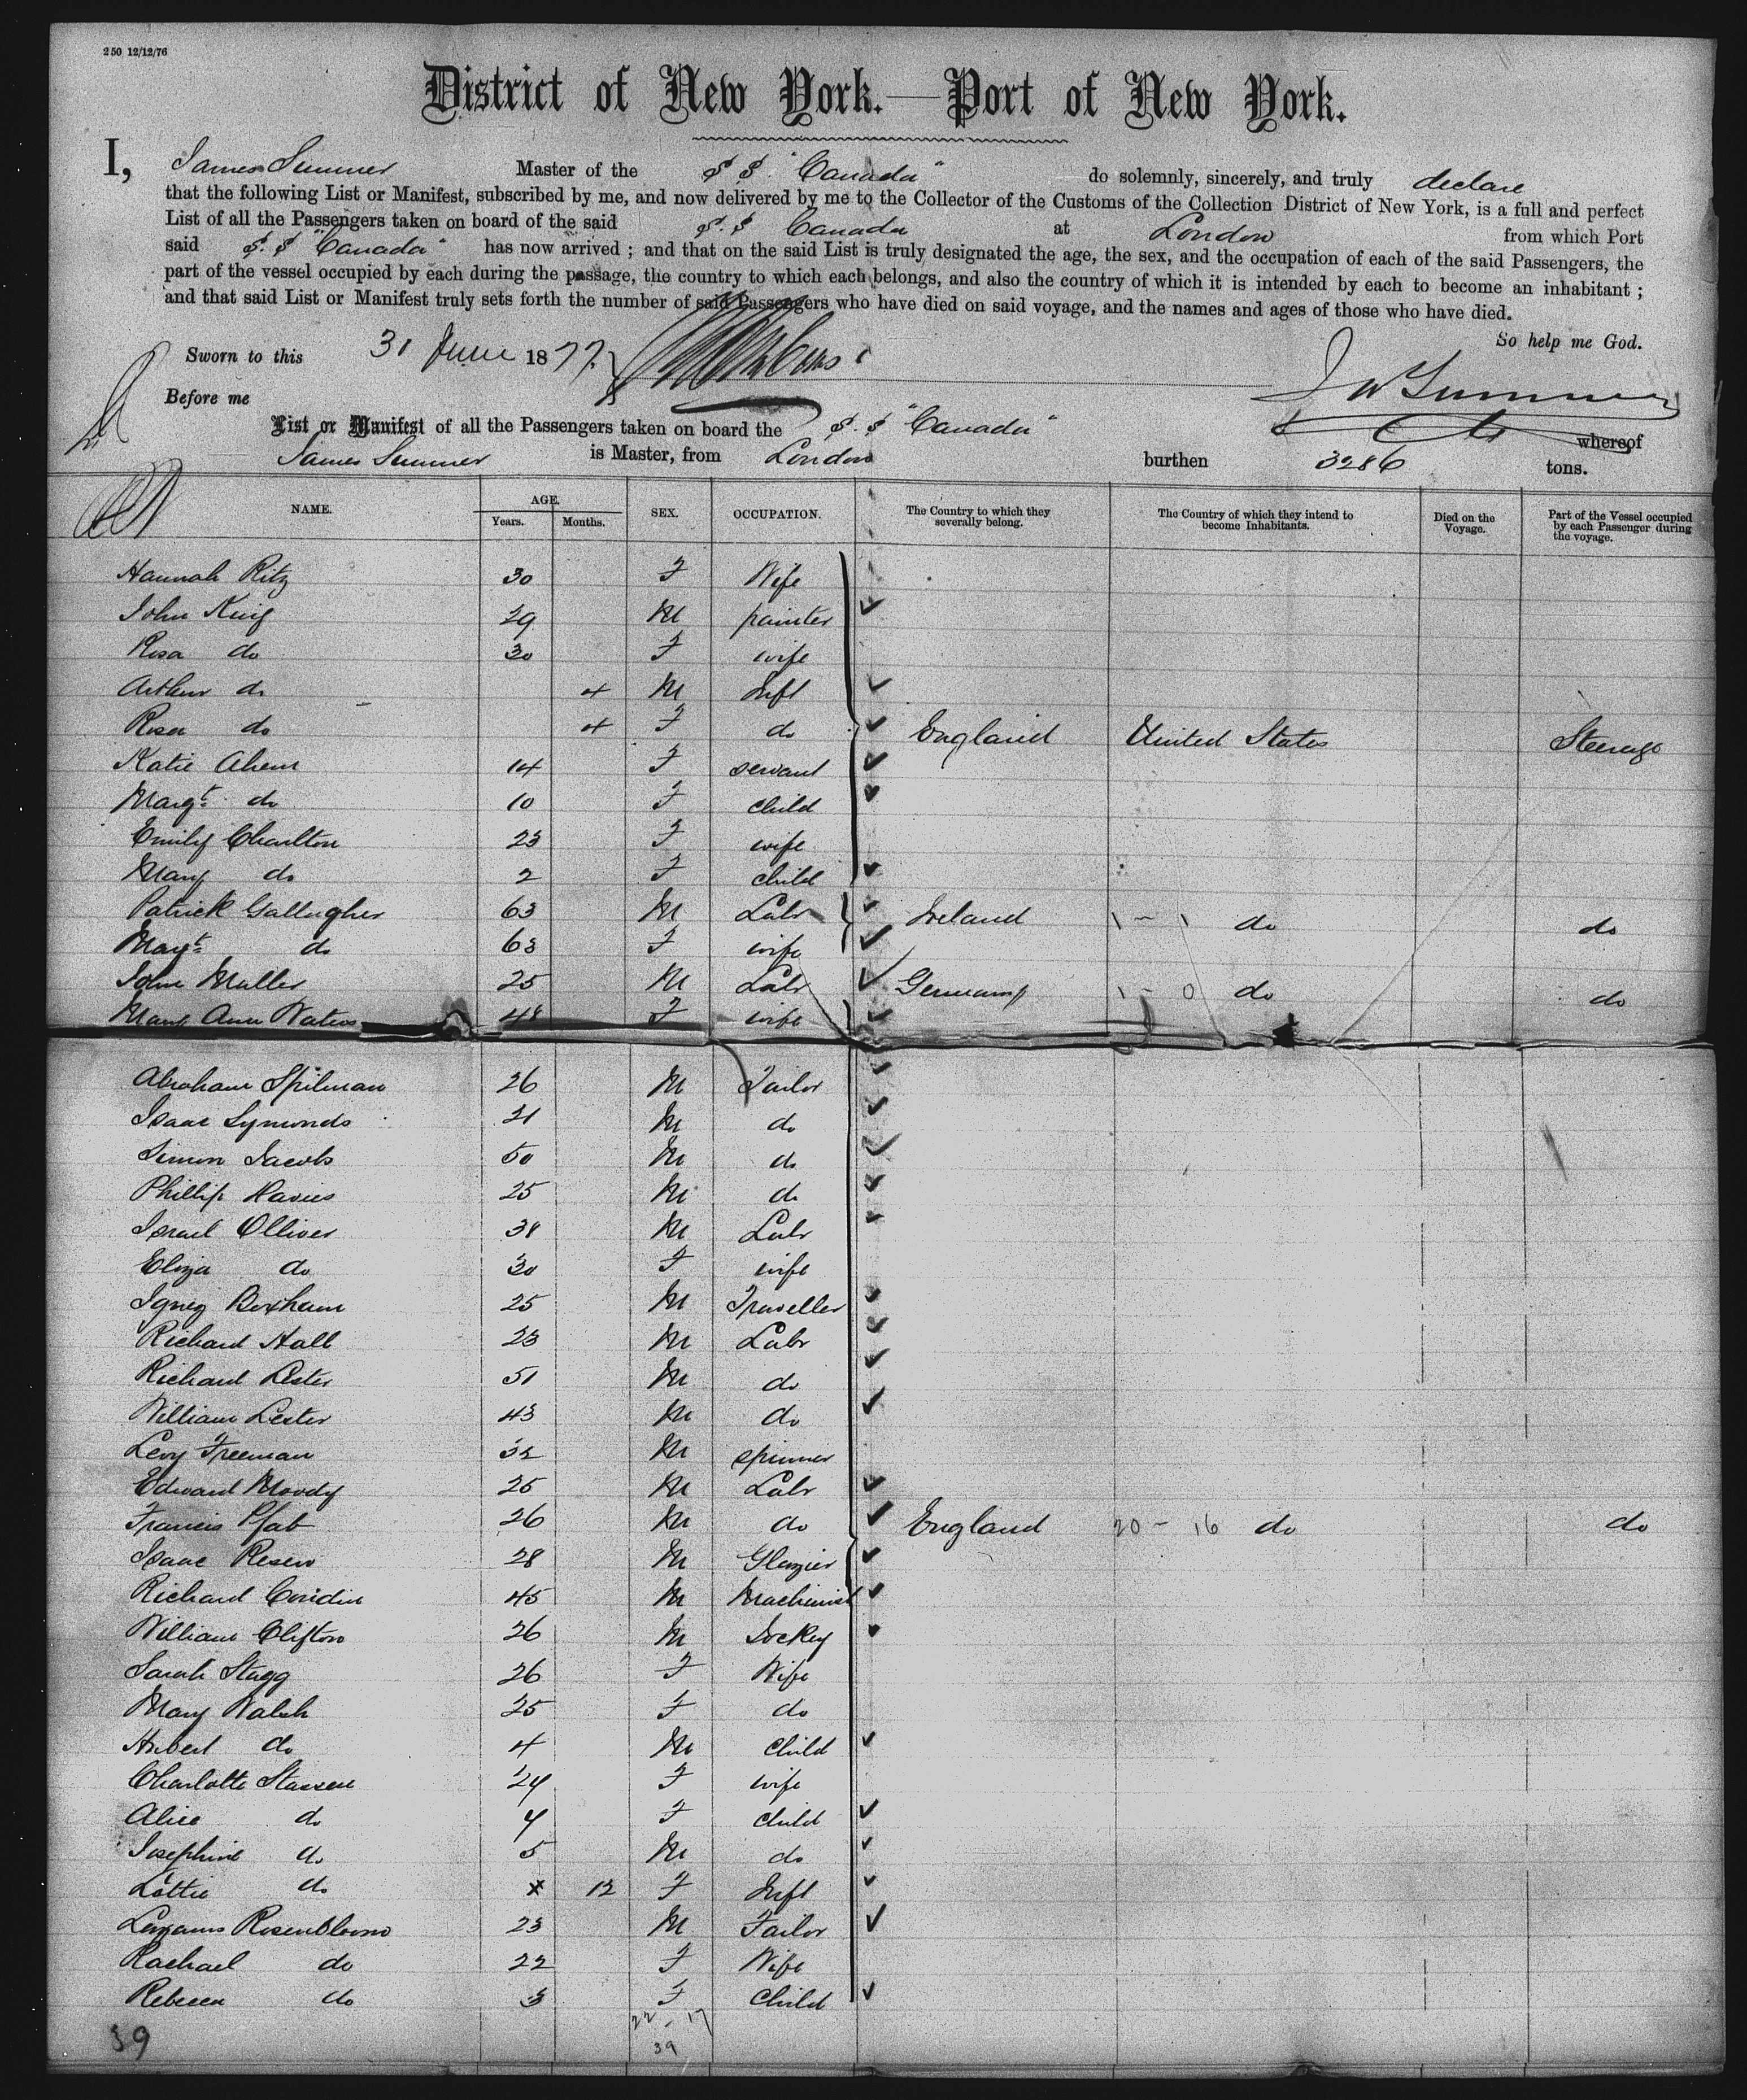 250 12/12/76
District of New York.—Port of New York.
I, James Sumner Master of the S S "Canada" do solemnly, sincerely, and truly declare
that the following List or Manifest, subscribed by me, and now delivered by me to the Collector of the Customs of the Collection District of New York, is a full and perfect
List of all the Passengers taken on board of the said S. S Canada at London from which Port
said S. S "Canada" has now arrived ; and that on the said List is truly designated the age, the sex, and the occupation of each of the said Passengers, the
part of the vessel occupied by each during the passage, the country to which each belongs, and also the country of which it is intended by each to become an inhabitant ;
and that said List or Manifest truly sets forth the number of said Passengers who have died on said voyage, and the names and ages of those who have died.
So help me God.
Sworn to this 31 June 1877.
J W Sumner
Before me
List or Manifest of all the Passengers taken on board the S. S "Canada" whereof
James Sumner is Master, from London burthen 3286 tons.
NAME. AGE. Years. Months. SEX. OCCUPATION. The Country to which they severally belong. The Country of which they intend to become Inhabitants. Died on the Voyage. Part of the Vessel occupied by each Passenger during the voyage.
Hannah Ritz 30 F Wife
John King 29 M painter
Rosa do 30 F wife
Arthur do 4 M Inft
Rosa do 4 F do England United States Steerage
Katie Ahern 14 F servant
Margt. do 10 F child
Emily Charlton 23 F wife
Mary do 2 F child
Patrick Gallagher 63 M Labr Ireland 1 - 1 do do
Margt. do 63 F wife
John Muller 25 M Labr Germany 1 - 0 do do
Mary Ann Waters 48 F wife
Abraham Spilman 26 M Tailor
Isaac Symonds 21 M do
Simon Jacobs 50 M do
Phillip Davies 25 M do
Israel Olliver 38 M Labr
Eliza do 30 F wife
Boxham 25 M Traveller
Richard Hall 23 M Labr
Richard Lester 51 M do
William Lester 43 M do
Levy Freeman 32 M spinner
Edward Moody 25 M Labr
Francis Pfab 26 M do England 20 - 16 do do
Isaac 28 M Glazier
Richard 45 M Machinist
William Clifton 26 M Jockey
Sarah Stagg 26 F Wife
Mary Walsh 25 F do
Hubert do 4 M Child
Charlotte 24 F wife
Alice do 4 F child
Josephine do 5 M do
Lottie do 12 F Inft
Rosenbloom 23 M Tailor
Rachael do 22 F Wife
Rebecca do 3 F Child
22 - 17
39 39